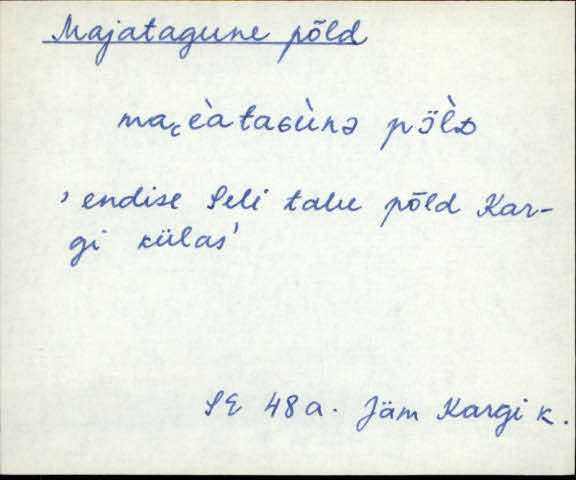 Majatagune põld
ma꜀èataɢùnə pɔ̈̀lᴅ
, endise Seli talu põld Kar-
gi külas'
SE 48 a. Jäm Kargi k.